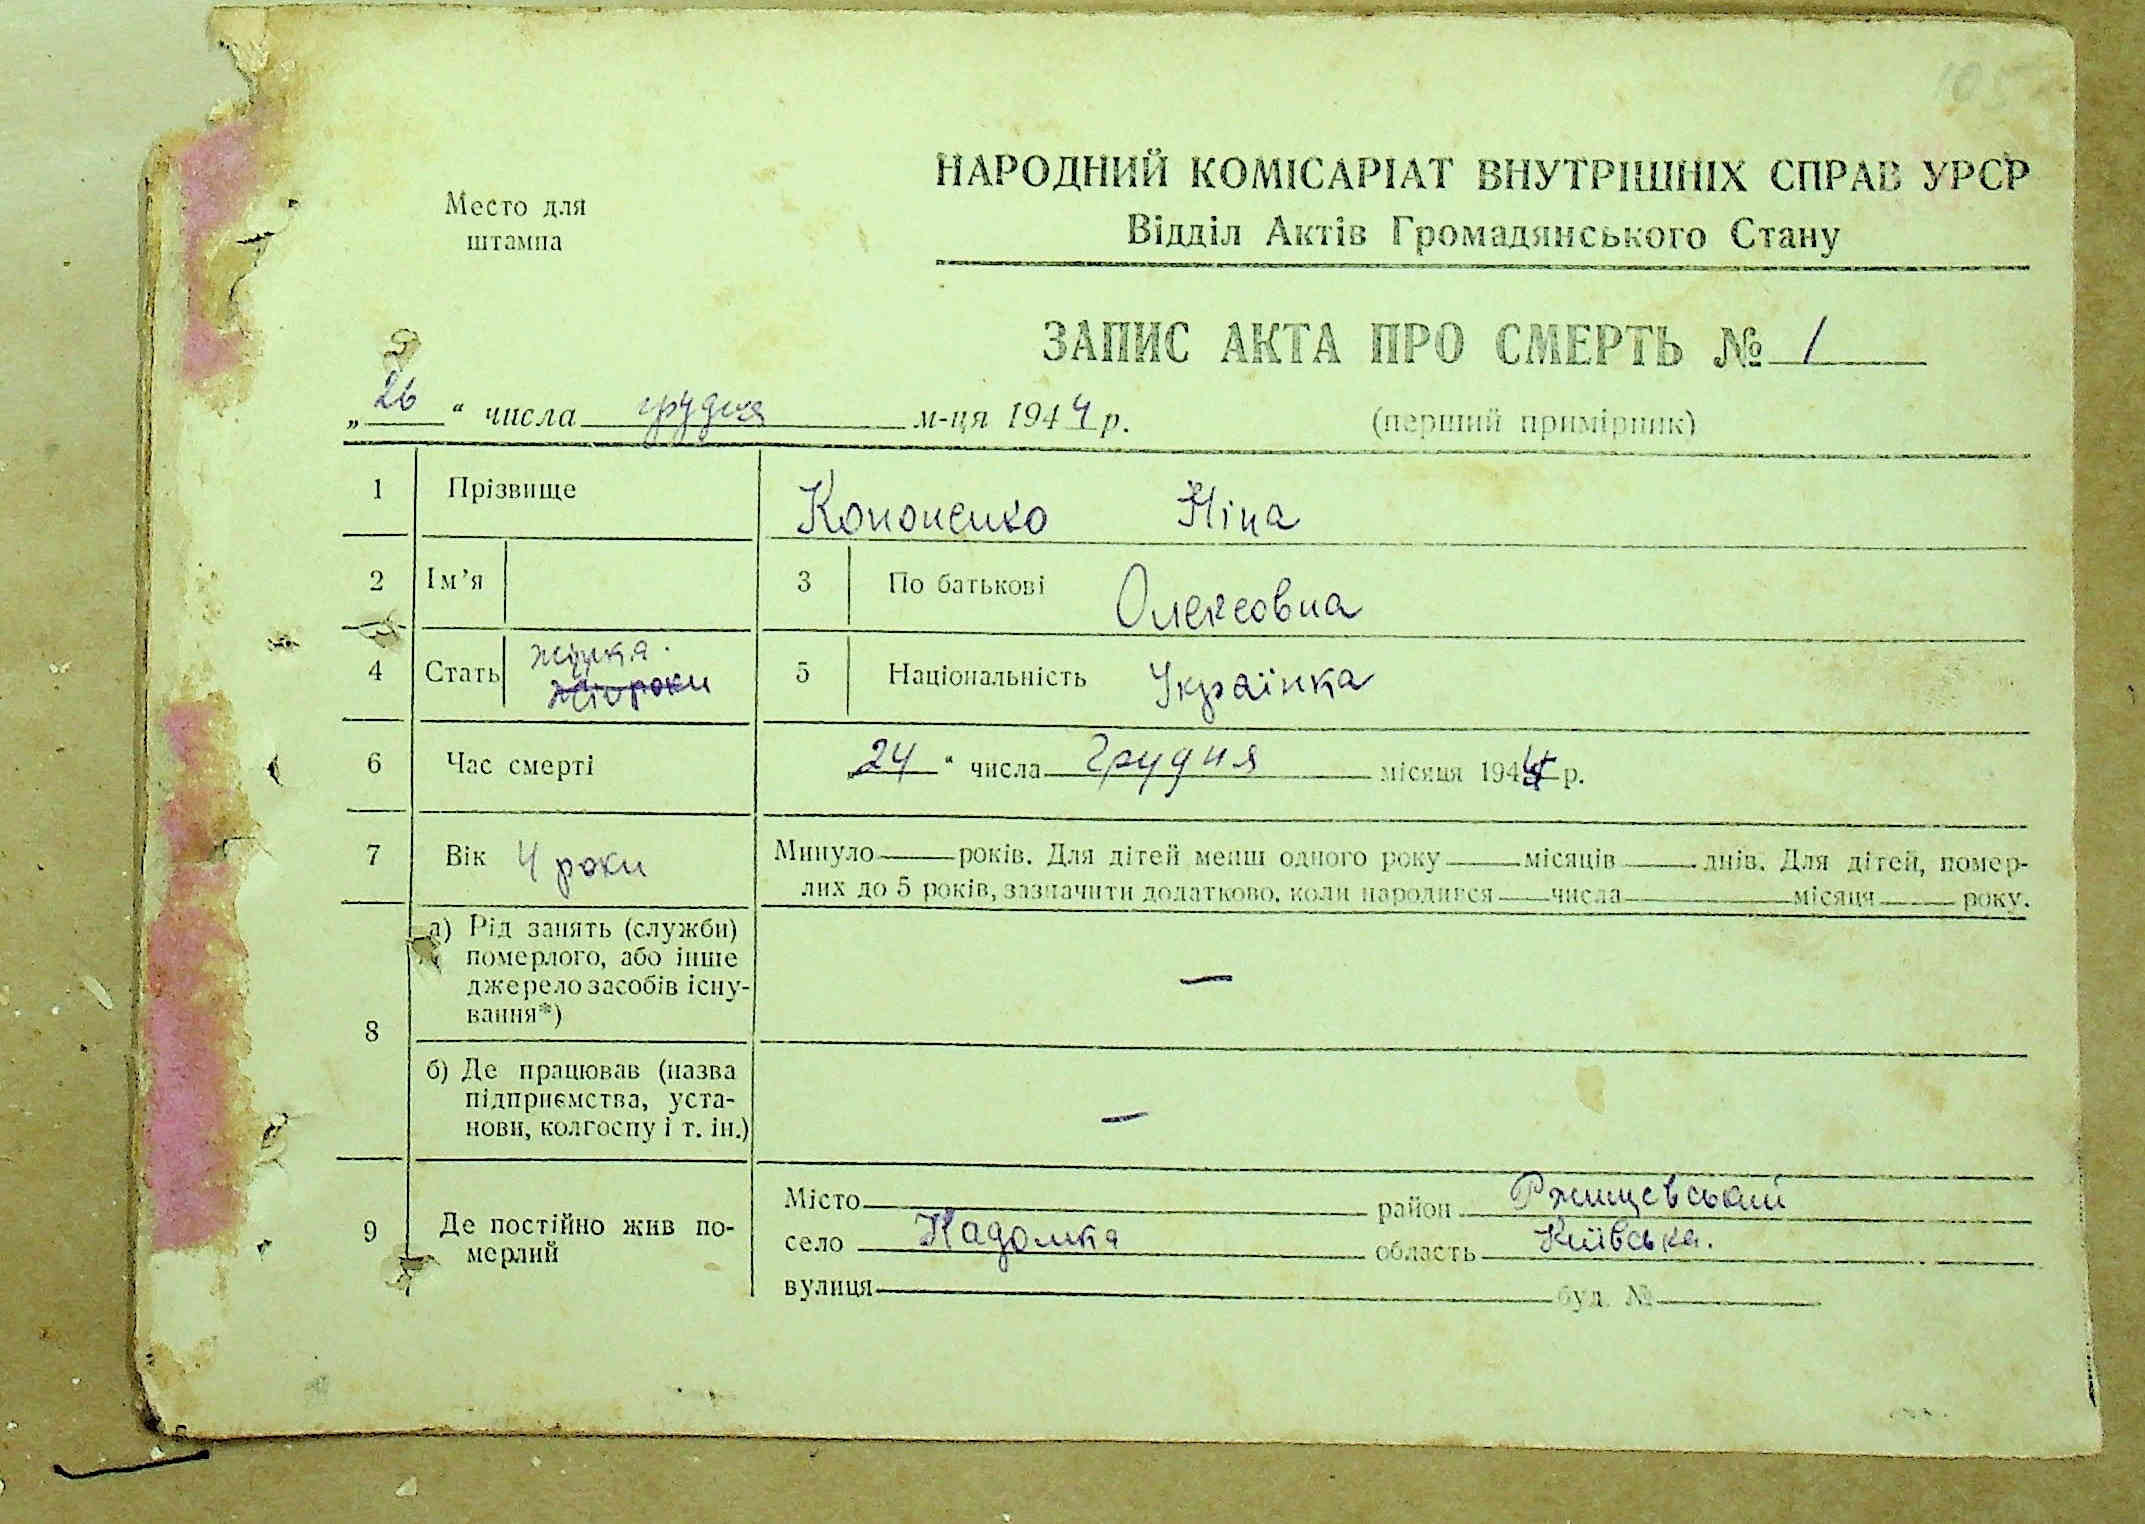 105
НАРОДНИЙ КОМІСАРІАТ ВНУТРІШНІХ СПРАВ УРСР
Место для
штампа
Відділ Актів Громадянського Стану
ЗАПИС АКТА ПРО СМЕРТЬ № 1
„26“ числа грудня м-ця 1944 р.
(перший примірник)
1 Прізвище Кононенко Ніна
2 Ім’я 3 По батькові Олексовна
4 Стать жінка. 4 роки 5 Національність Українка
6 Час смерті 24 “ числа Грудня місяця 1944 р.
7 Вік 4 роки Минуло років. Для дітей менш одного року місяців днів. Для дітей, помер-
лих до 5 років, зазначити додатково, коли народився числа місяця року.
8
а) Рід занять (служби)
померлого, або інше
джерело засобів існу-
вання*) —
б) Де працював (назва
підприємства, уста-
нови, колгоспу і т. ін.) —
9 Де постійно жив по-
мерлий
Місто район Ржищевський
село Кадомка область Київська.
вулиця буд. №